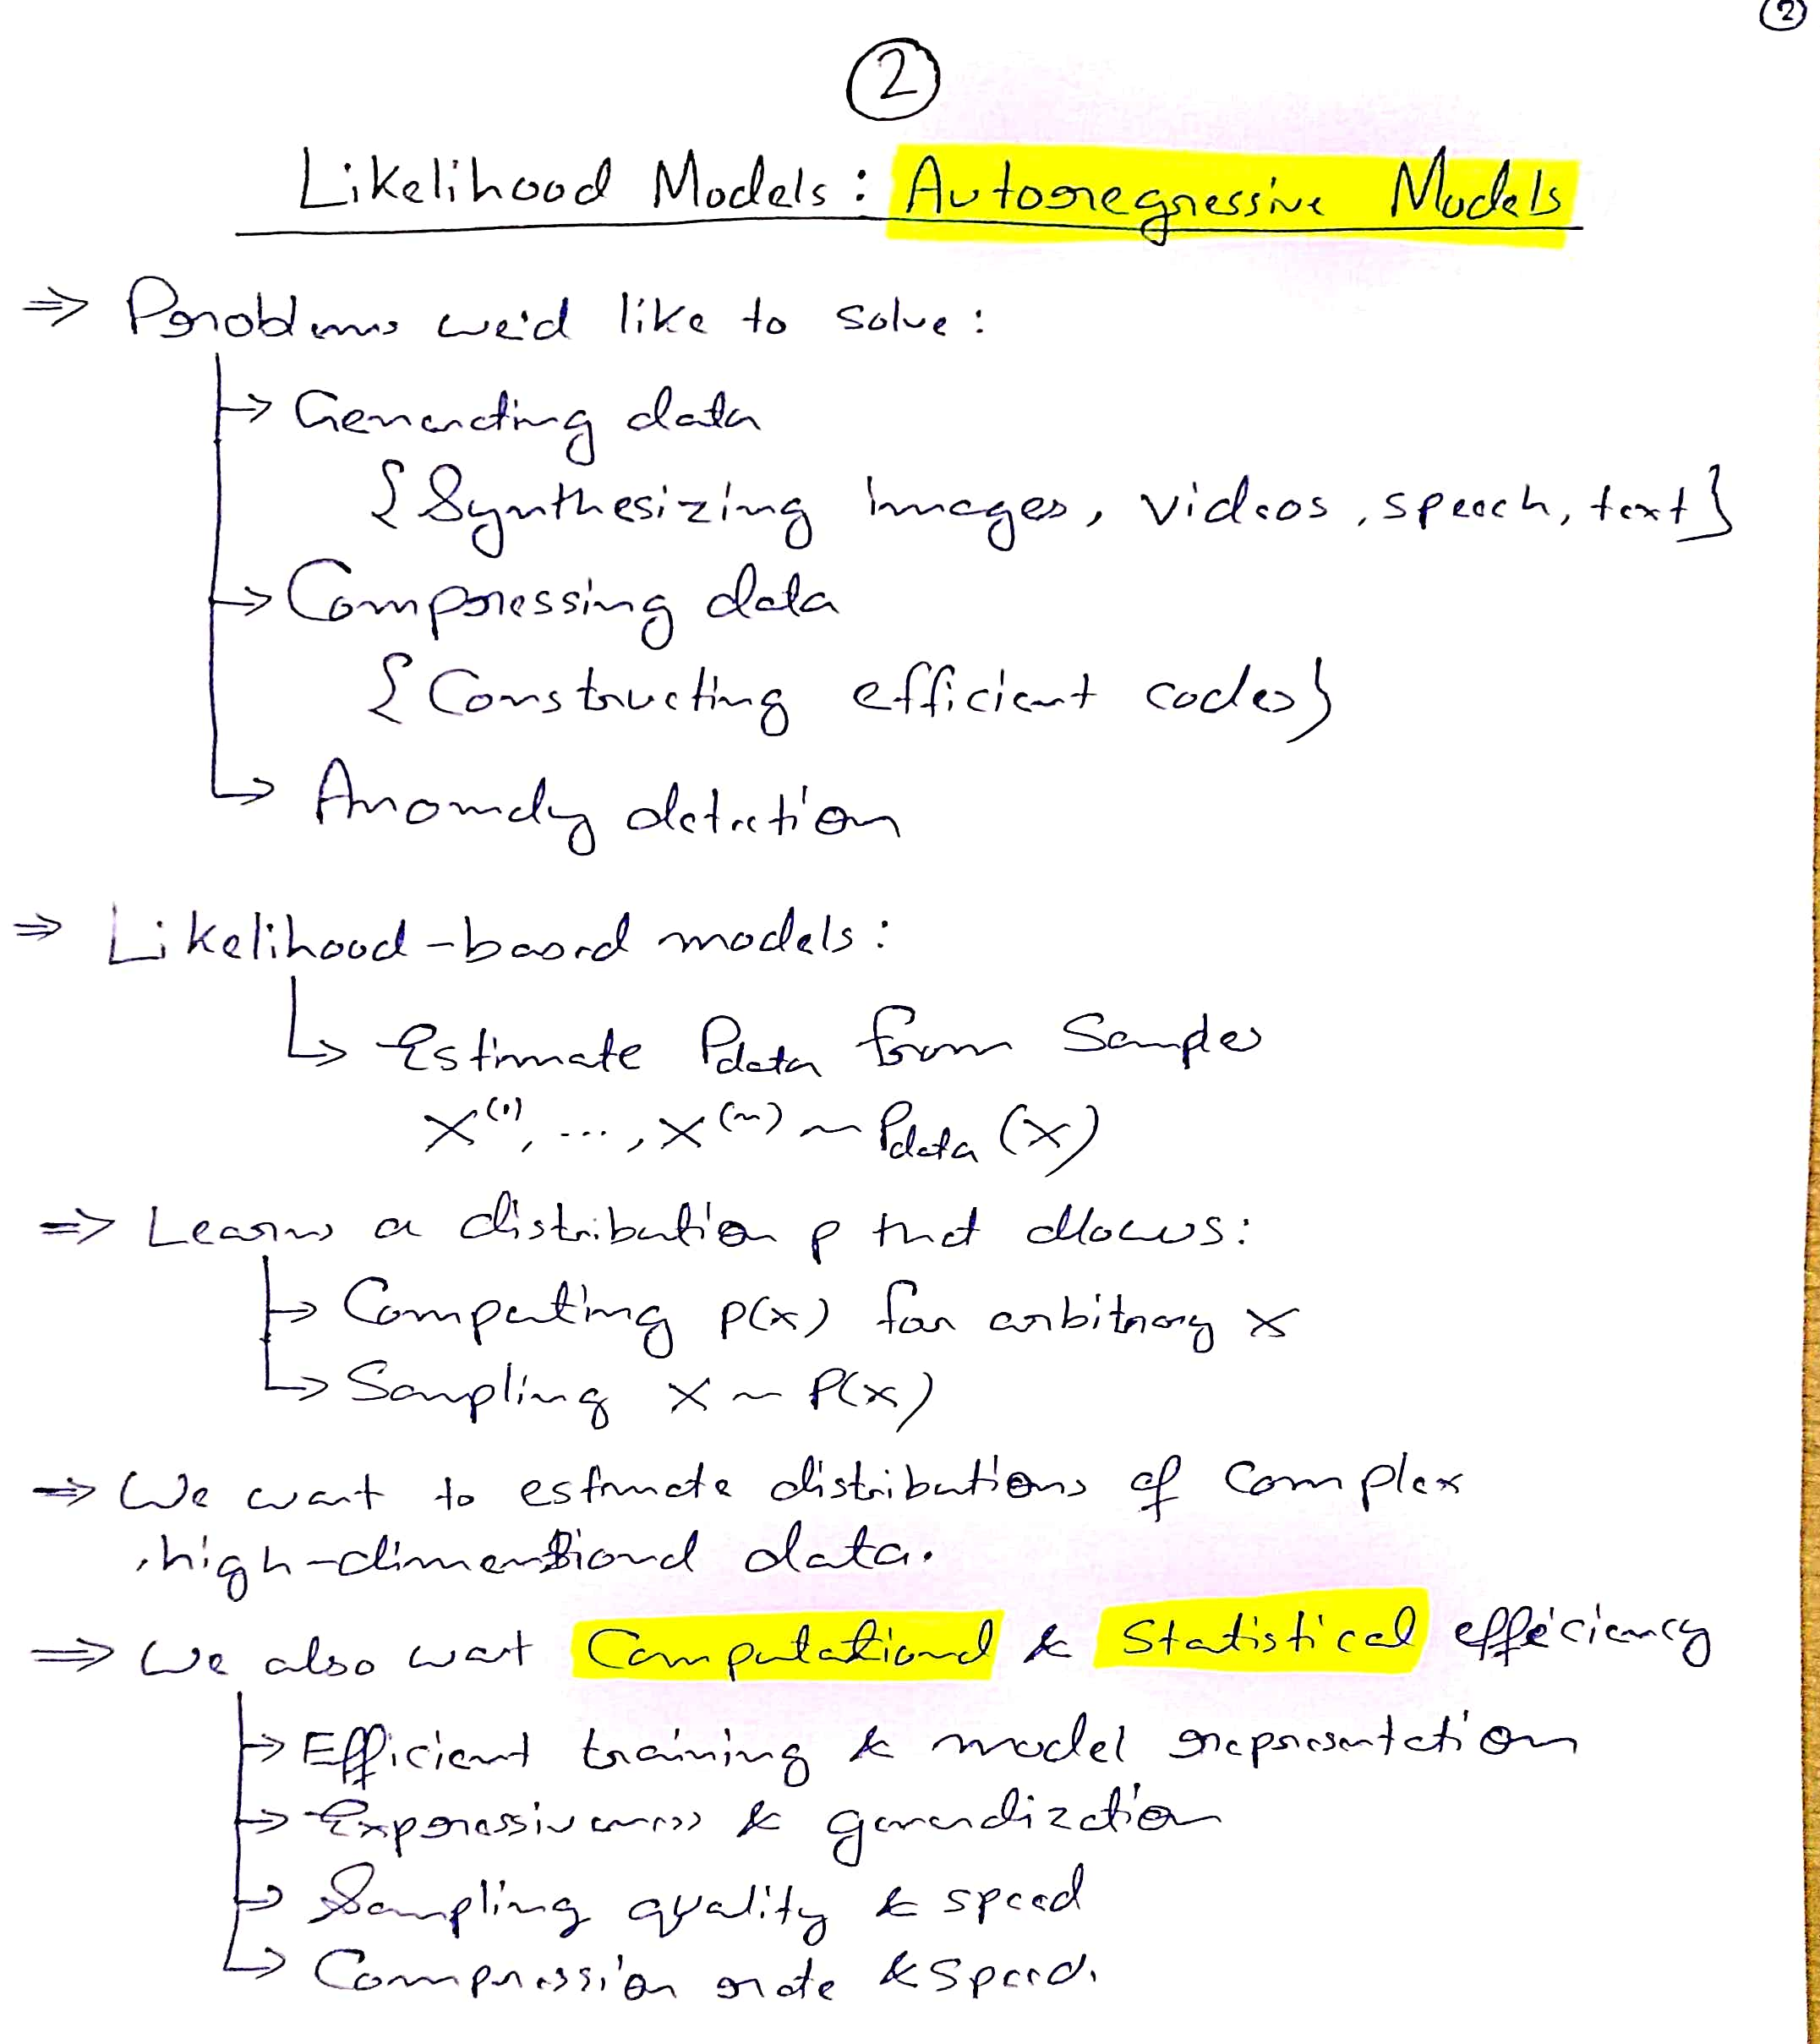 ②
②
Likelihood Models : Autoregressive Models
⇒ Problems we'd like to solve :
→ Generating data
{Synthesizing images, videos, speech, text}
→ Compressing data
{Constructing efficient codes}
→ Anomaly detection
⇒ Likelihood-based models :
↳ Estimate Pdata from Samples
x⁽¹⁾, ..., x⁽ⁿ⁾ ~ Pdata (x)
⇒ Learns a distribution p that allows :
→ Computing p(x) for arbitrary x
↳ Sampling x ~ P(x)
⇒ We want to estimate distributions of complex
, high-dimensional data.
⇒ We also want Computational & Statistical efficiency
→ Efficient training & model representation
→ Expressiveness & generalization
→ Sampling quality & speed
↳ Compression rate & speed.